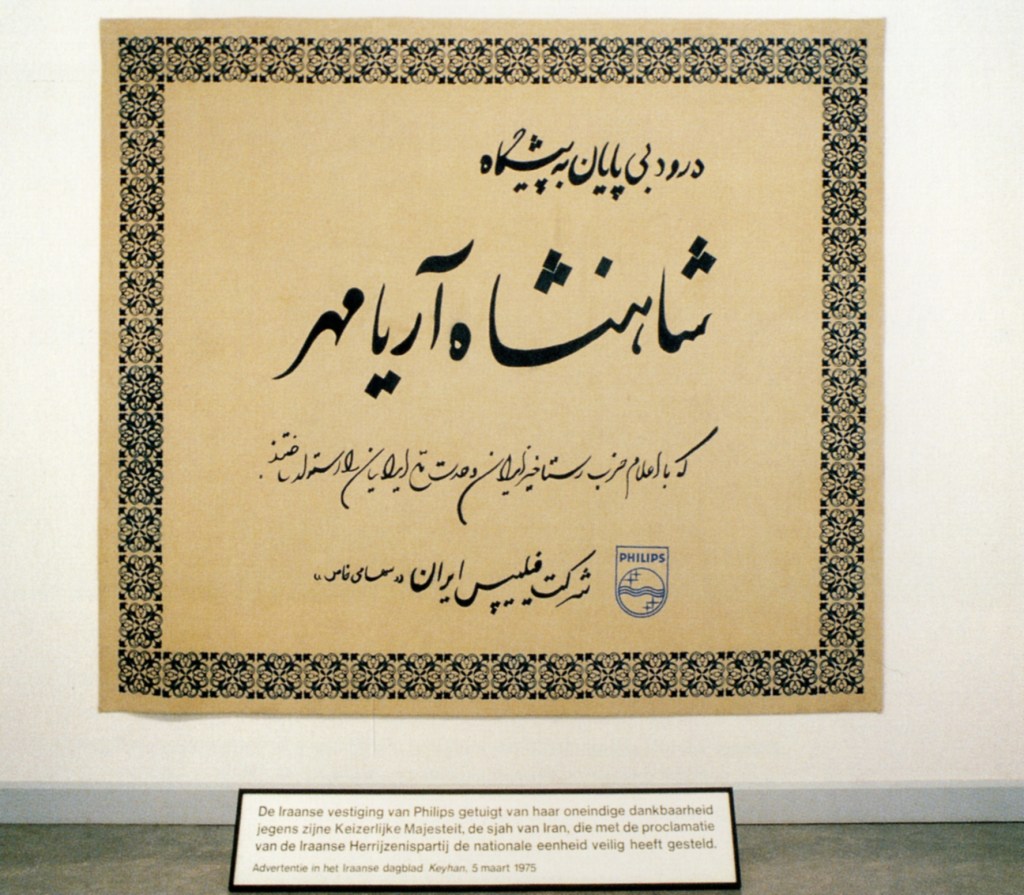 درود بی پایان به پیشگاه
شاهنشاه آریامهر
که با اعلام حزب رستاخیز ایران وحدت ایرانیان را استوار ساختند.
شرکت فیلیپس ایران «سهامی خاص»
PHILIPS
De Iraanse vestiging van Philips getuigt van haar oneindige dankbaarheid
jegens zijne Keizerlijke Majesteit, de sjah van Iran, die met de proclamatie
van de Iraanse Herrijzenispartij de nationale eenheid veilig heeft gesteld.
Advertentie in het Iraanse dagblad Keyhan, 5 maart 1975